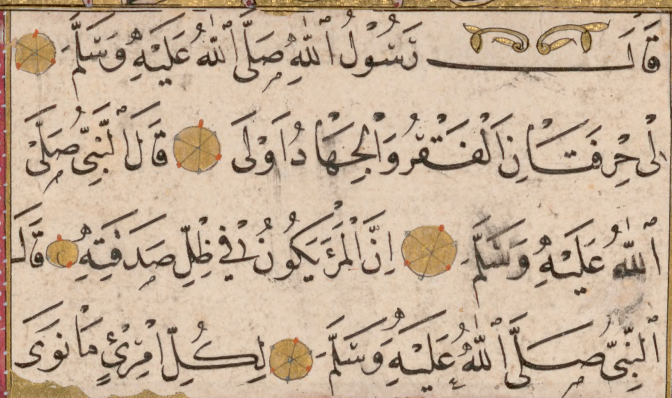 قَالَ رَسُولُ اللّٰهِ صَلَّى اللّٰهُ عَلَيْهِ وَسَلَّمَ
لِى حِرْفَتَانِ الْفَقْرُ وَالْجِهَادُ اَوْلَى قَالَ النَّبِىُّ صَلَّى
اللّٰهُ عَلَيْهِ وَسَلَّمَ اِنَّ الْمَرْءَ يَكُونُ فِى ظِلِّ صَدَقَتِهِ قَالَ
النَّبِىُّ صَلَّى اللّٰهُ عَلَيْهِ وَسَلَّمَ لِكُلِّ امْرِئٍ مَا نَوَى